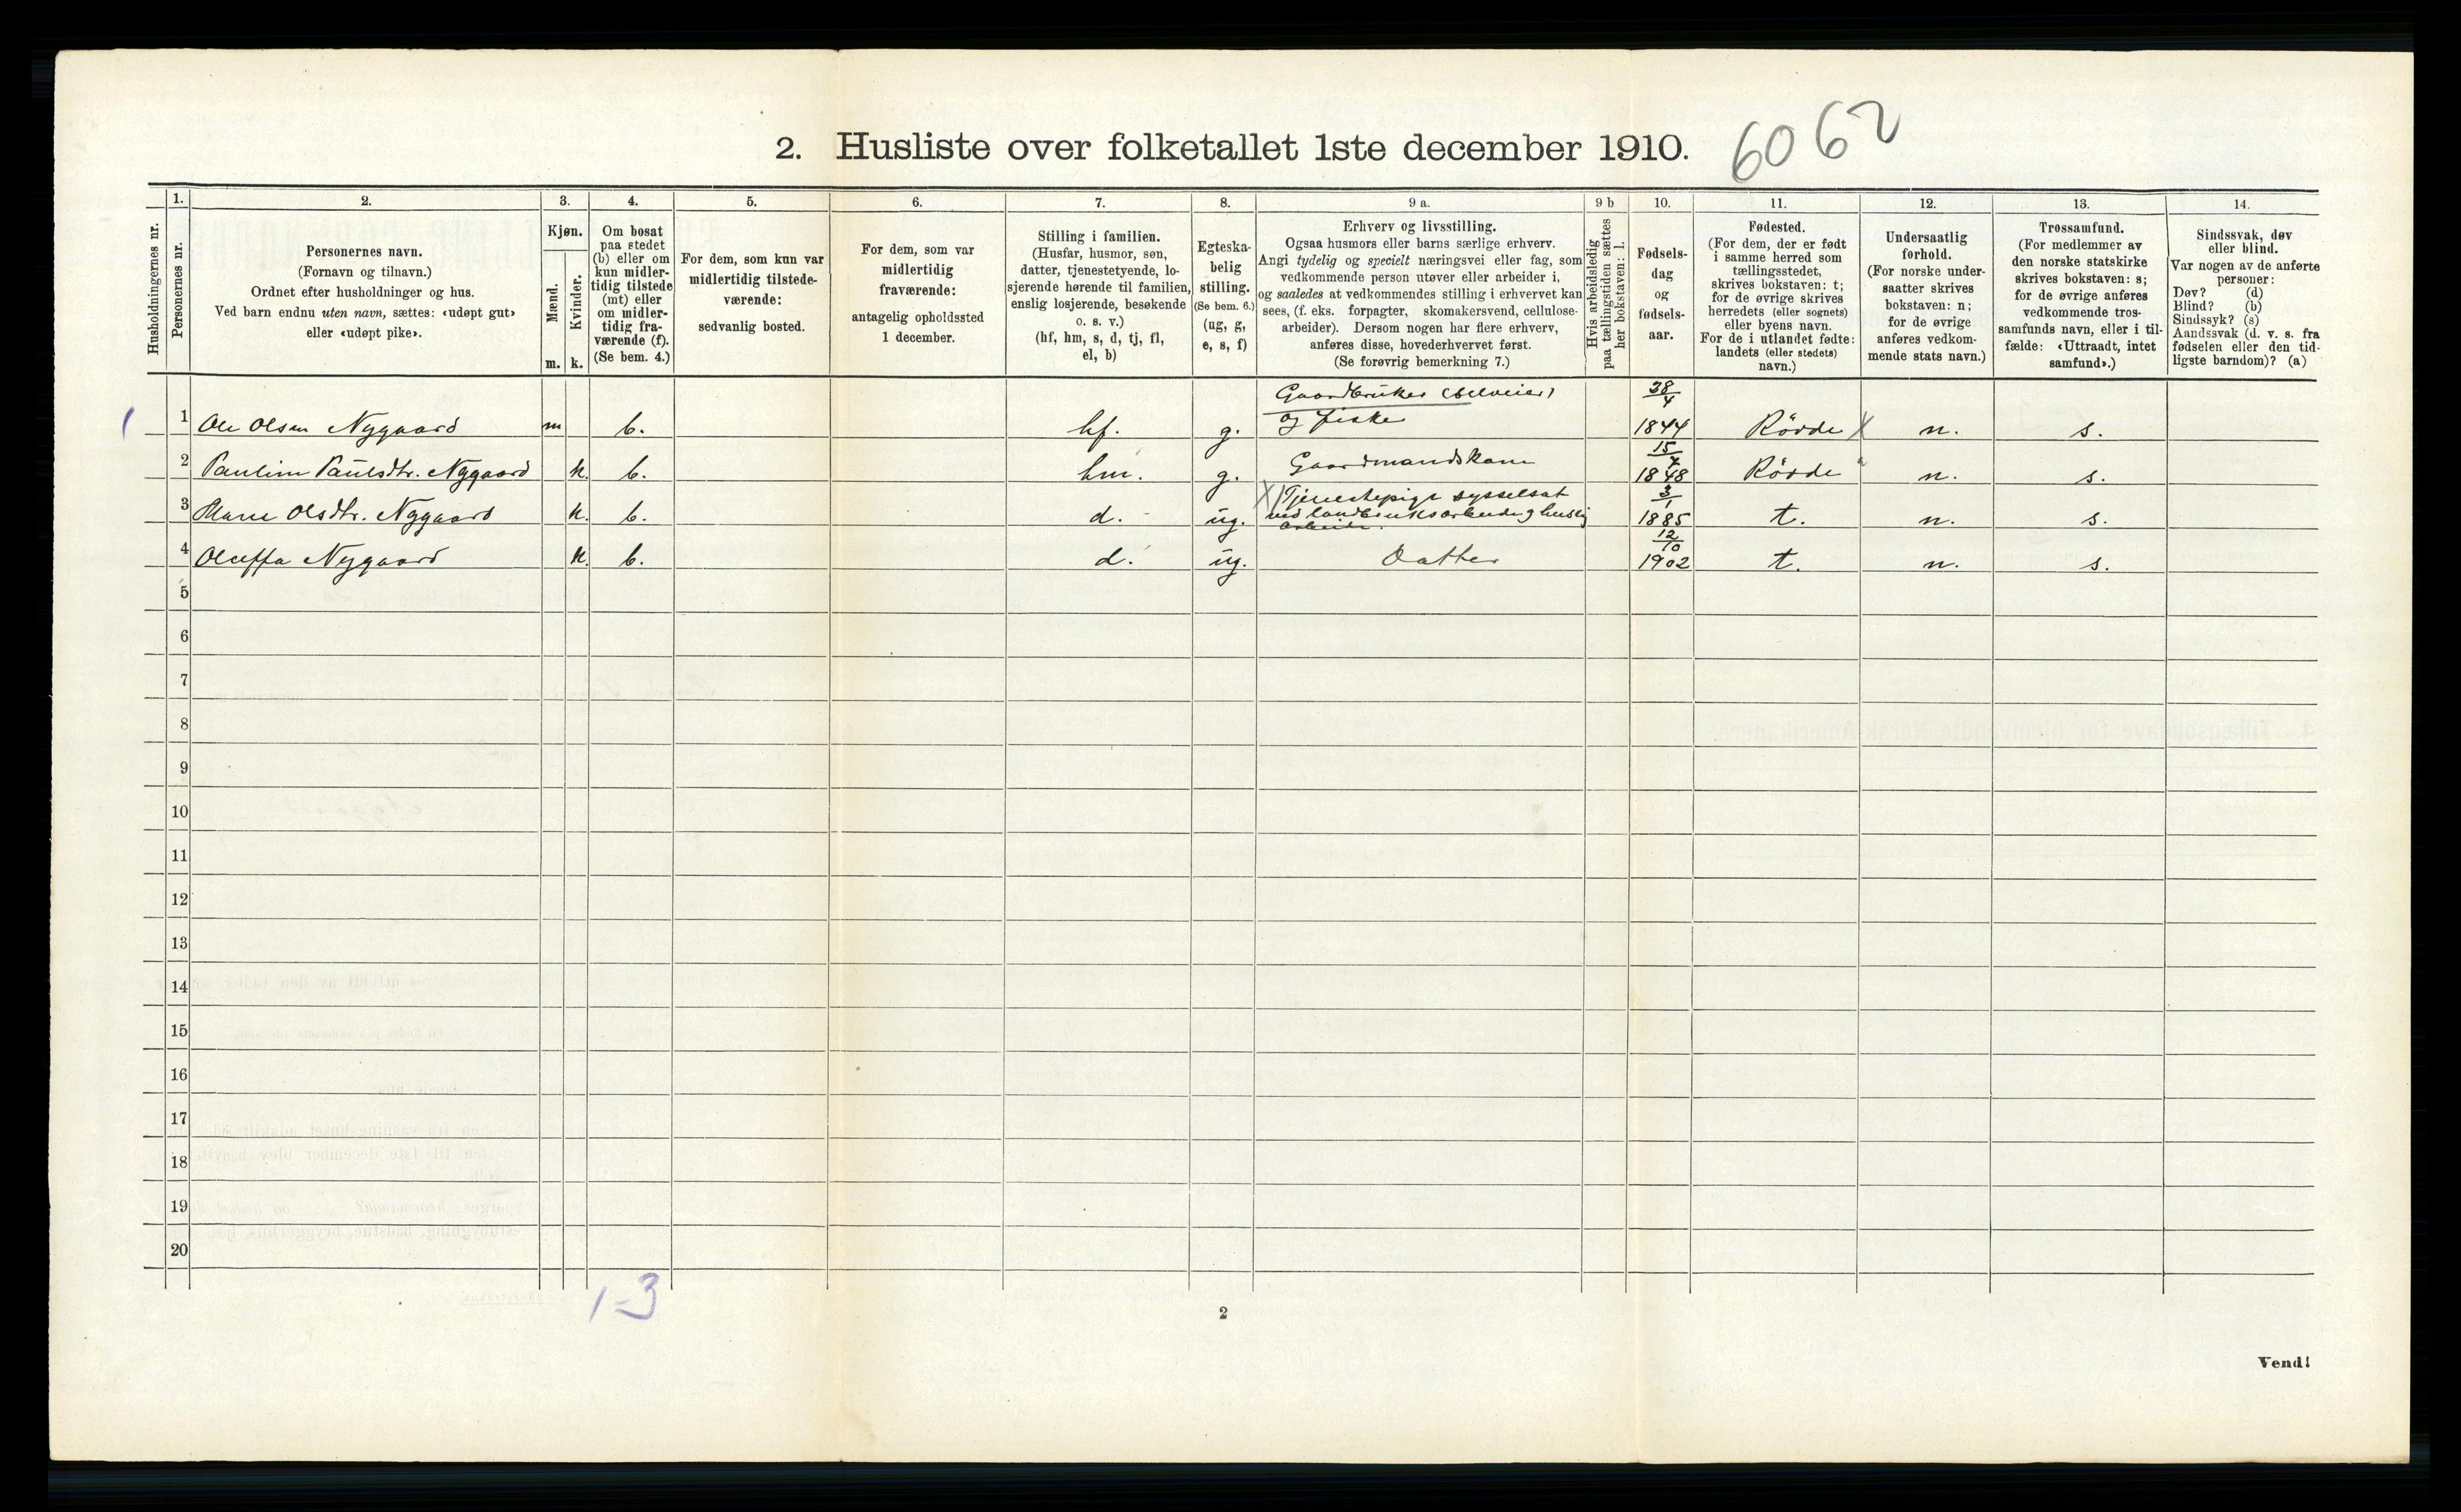 2. Husliste over folketallet 1ste december 1910. 6062
Husholdningernes nr.
1.
Personernes nr.
2.
Personernes navn.
(Fornavn og tilnavn.)
Ordnet efter husholdninger og hus.
Ved barn endnu uten navn, sættes: «udøpt gut»
eller «udøpt pike».
3.
Kjøn.
Mænd.
Kvinder.
m. k.
4.
Om bosat
paa stedet
(b) eller om
kun midler-
tidig tilstede
(mt) eller
om midler-
tidig fra-
værende (f).
(Se bem. 4.)
5.
For dem, som kun var
midlertidig tilstede-
værende:
sedvanlig bosted.
6.
For dem, som var
midlertidig
fraværende:
antagelig opholdssted
1 december.
7.
Stilling i familien.
(Husfar, husmor, søn,
datter, tjenestetyende, lo-
sjerende hørende til familien,
enslig losjerende, besøkende
o. s. v.)
(hf, hm, s, d, tj, fl,
el, b)
8.
Egteska-
belig
stilling.
(Se bem. 6.)
(ug, g,
e, s, f)
9 a.
Erhverv og livsstilling.
Ogsaa husmors eller barns særlige erhverv.
Angi tydelig og specielt næringsvei eller fag, som
vedkommende person utøver eller arbeider i,
og saaledes at vedkommendes stilling i erhvervet kan
sees, (f. eks. forpagter, skomakersvend, cellulose-
arbeider). Dersom nogen har flere erhverv,
anføres disse, hovederhvervet først.
(Se forøvrig bemerkning 7.)
9 b
Hvis arbeidsledig
paa tællingstiden sættes
her bokstaven: l.
10.
Fødsels-
dag
og
fødsels-
aar.
11.
Fødested.
(For dem, der er født
i samme herred som
tællingsstedet,
skrives bokstaven: t;
for de øvrige skrives
herredets (eller sognets)
eller byens navn.
For de i utlandet fødte:
landets (eller stedets)
navn.)
12.
Undersaatlig
forhold.
(For norske under-
saatter skrives
bokstaven: n;
for de øvrige
anføres vedkom-
mende stats navn.)
13.
Trossamfund.
(For medlemmer av
den norske statskirke
skrives bokstaven: s;
for de øvrige anføres
vedkommende tros-
samfunds navn, eller i til-
fælde: «Uttraadt, intet
samfund».)
14.
Sindssvak, døv
eller blind.
Var nogen av de anførte
personer:
Døv? (d)
Blind? (b)
Sindssyk? (s)
Aandssvak (d. v. s. fra
fødselen eller den tid-
ligste barndom)? (a)
Gaardbruker (selveier) 28/4
1 1 Ole Olsen Nygaard m b. hf. g. og fiske 1844 Rövde X n. s.
15/7
2 Pauline Paulsdtr. Nygaard k. b. hm. g. Gaardmandskone 1848 Rövde n. s.
X) Tjenestepige sysselsat 3/1
3 Marie Olsdtr. Nygaard k. b. d. ug. ved landbruksarbeide og huslig 1885 t. n. s.
arbeide. 12/10
4 Oleffa Nygaard k. b. d. ug. Datter 1902 t. n. s.
5
6
7
8
9
10
11
12
13
14
15
16
17
18
19
20
1-3
2
Vend!